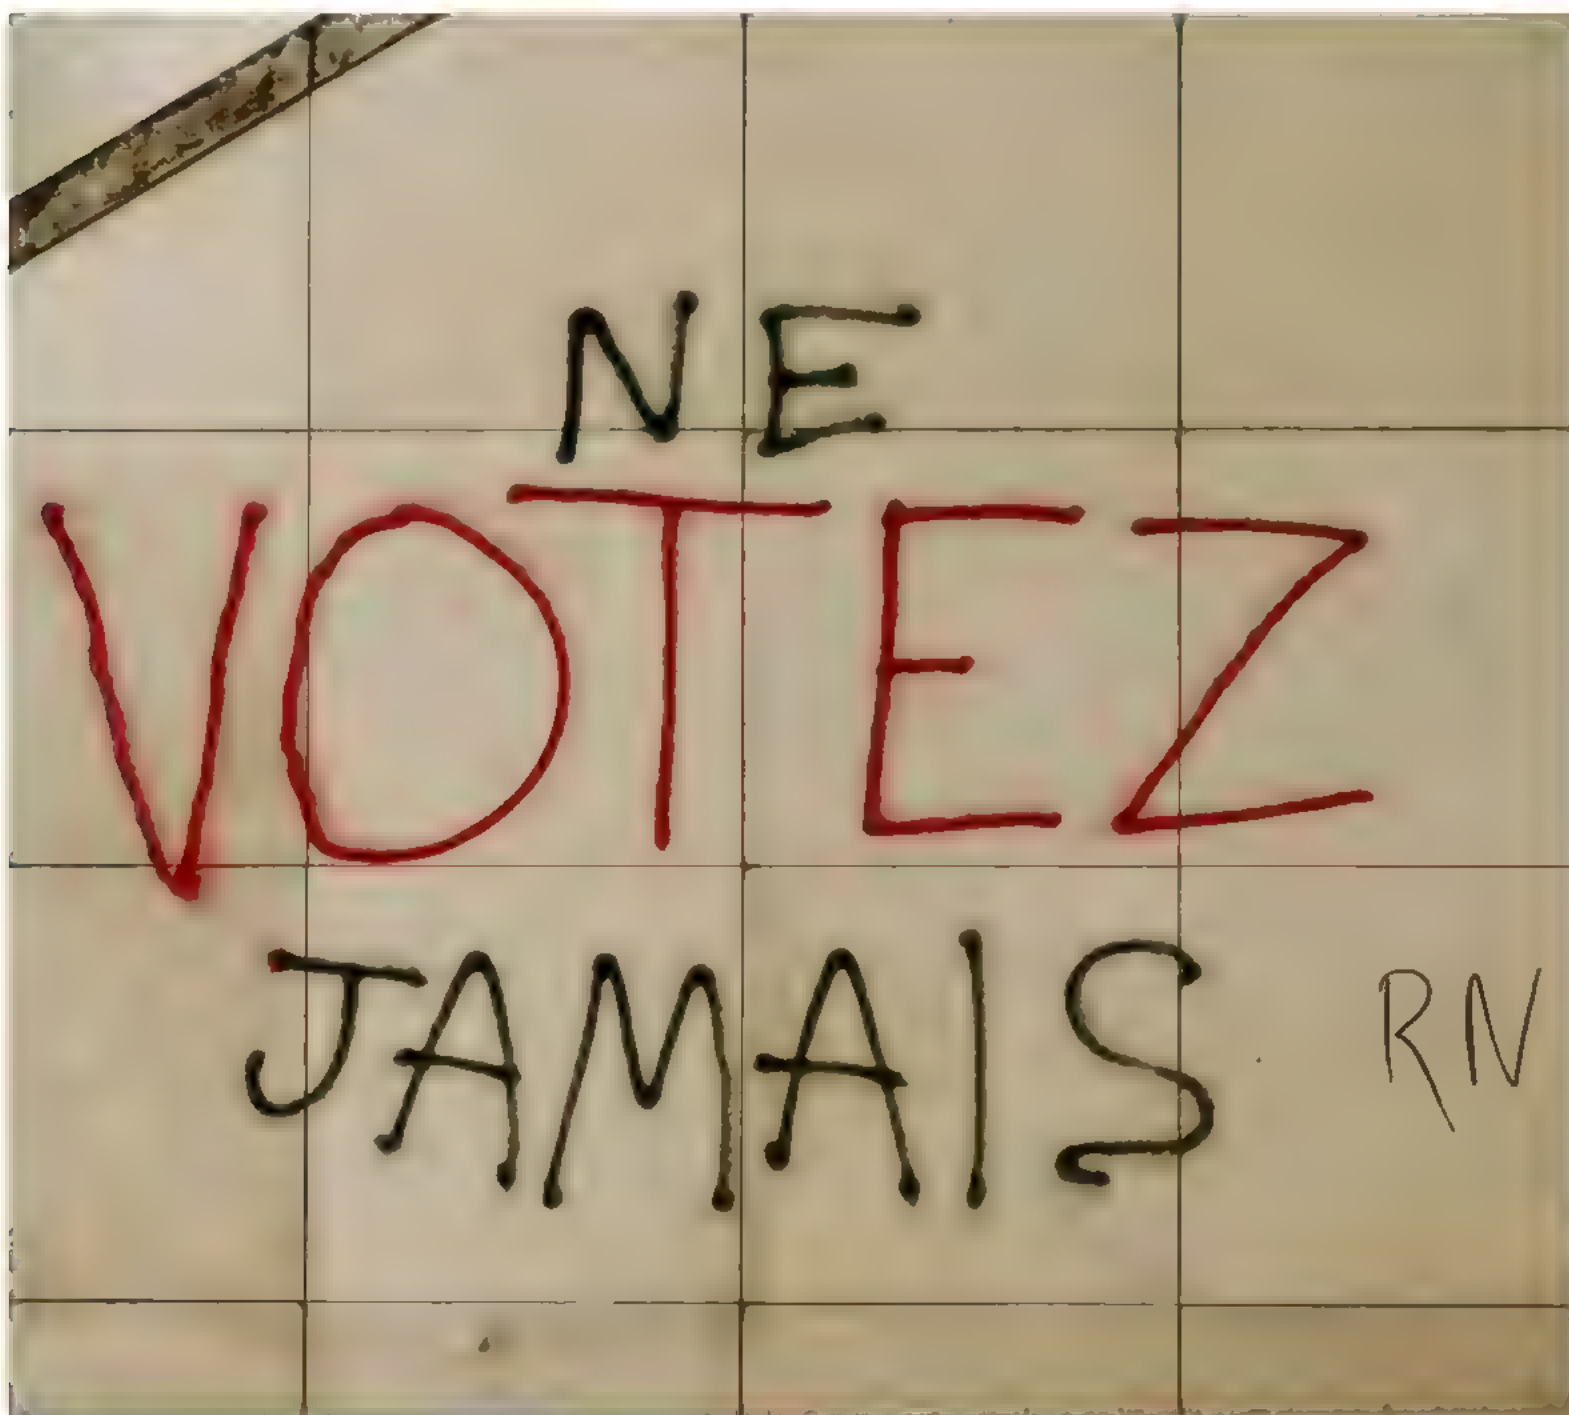 NE
VOTEZ
JAMAIS RN